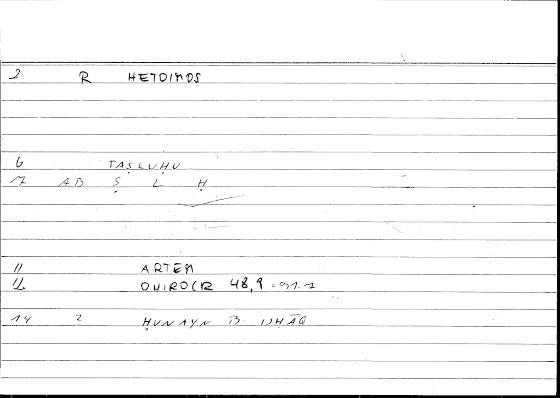 2 R HETOIMOS
6 TAṢLUḤU
7 AB Ṣ L Ḥ
11 ARTEM
12 ONIROCR 48,9 =
14 2 ḤUNAYN B. ISḤĀQ